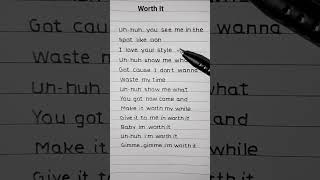 Worth It
Uh-huh, you see me in the
Spot like ooh
I love your style
Uh-huh show me what
Got cause I don't wanna
Waste my time
Uh-huh show me what
You got now come and
Make it worth my while
Give it to me im worth it
Baby im worth it
Uh-huh i'm worth it
Gimme, gimme i'm worth it
Got cause
Waste m
Uh-huh
You got
Make it
Give it t
wanna
what
and
while
orth it